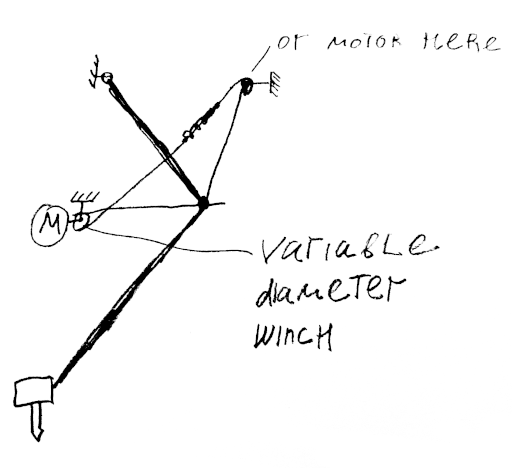 or motor Here
M
variable
diameter
winch